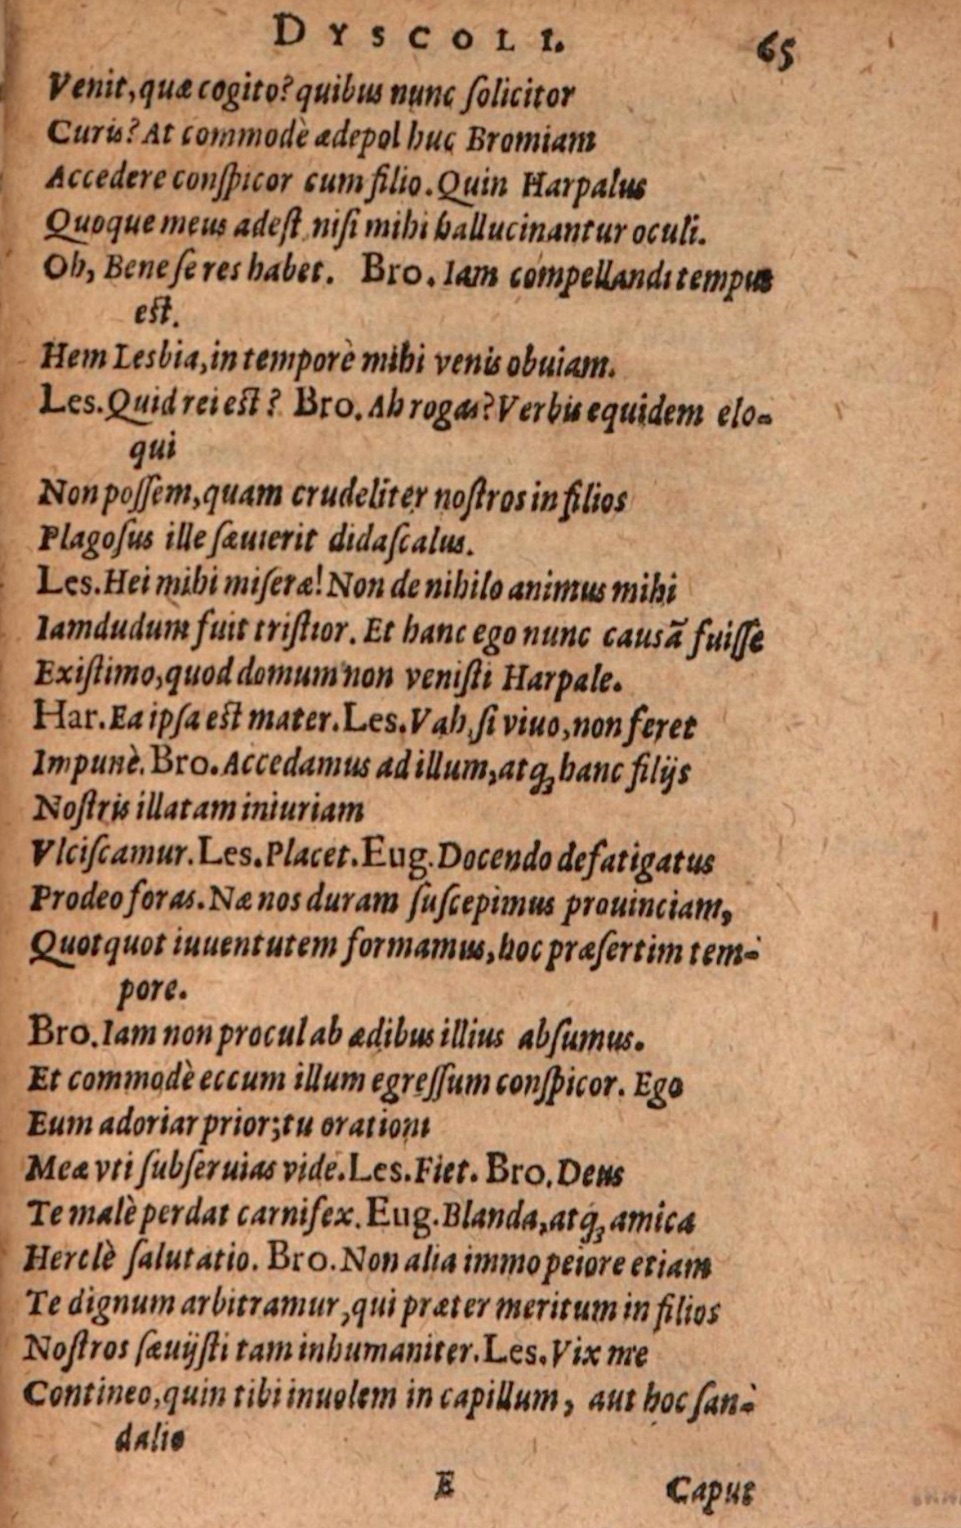 DYSCOLI. 65
Venit, quæ cogito? quibus nunc ſolicitor
Curis? At commodè ædepol huc Bromiam
Accedere conſpicor cum filio. Quin Harpalus
Quoque meus adeſt, niſi mihi hallucinantur oculi.
Oh, Bene ſe res habet. Bro. Iam compellandi tempus
eſt.
Hem Lesbia, in temporè mihi venis obuiam.
Les. Quid rei eſt? Bro. Ah rogas? Verbis equidem elo-
qui
Non poſſem, quam crudeliter noſtros in filios
Plagoſus ille ſæuierit didaſcalus.
Les. Hei mihi miſeræ! Non de nihilo animus mihi
Iamdudum fuit triſtior. Et hanc ego nunc causã fuiſſe
Exiſtimo, quod domum non veniſti Harpale.
Har. Ea ipſa eſt mater. Les. Vah, ſi viuo, non feret
Impunè. Bro. Accedamus ad illum, atq; hanc filijs
Noſtris illatam iniuriam
Vlciſcamur. Les. Placet. Eug. Docendo defatigatus
Prodeo foras. Næ nos duram ſuſcepimus prouinciam,
Quotquot iuuentutem formamus, hoc præſertim tem-
pore.
Bro. Iam non procul ab ædibus illius abſumus.
Et commodè eccum illum egreſſum conſpicor. Ego
Eum adoriar prior; tu orationi
Meæ vti ſubſeruias vide. Les. Fiet. Bro. Deus
Te malè perdat carnifex. Eug. Blanda, atq; amica
Herclè ſalutatio. Bro. Non alia immo peiore etiam
Te dignum arbitramur, qui præter meritum in filios
Noſtros ſæuijſti tam inhumaniter. Les. Vix me
Contineo, quin tibi inuolem in capillum, aut hoc ſan-
dalio
E Caput